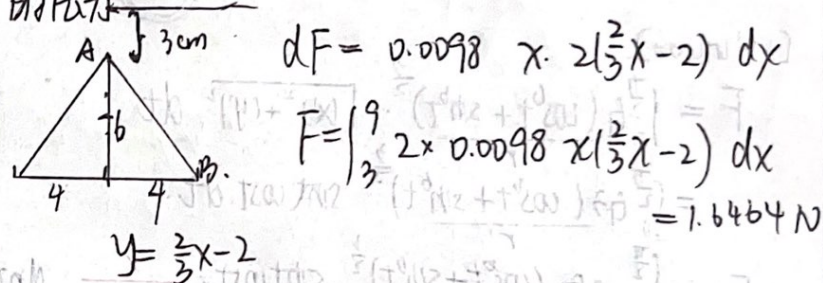 3cm
A
6
B.
4 4
y = 2/3 x - 2
dF = 0.0098 x · 2(2/3 x - 2) dx
F = ∫₃⁹ 2 × 0.0098 x(2/3 x - 2) dx
= 1.6464 N